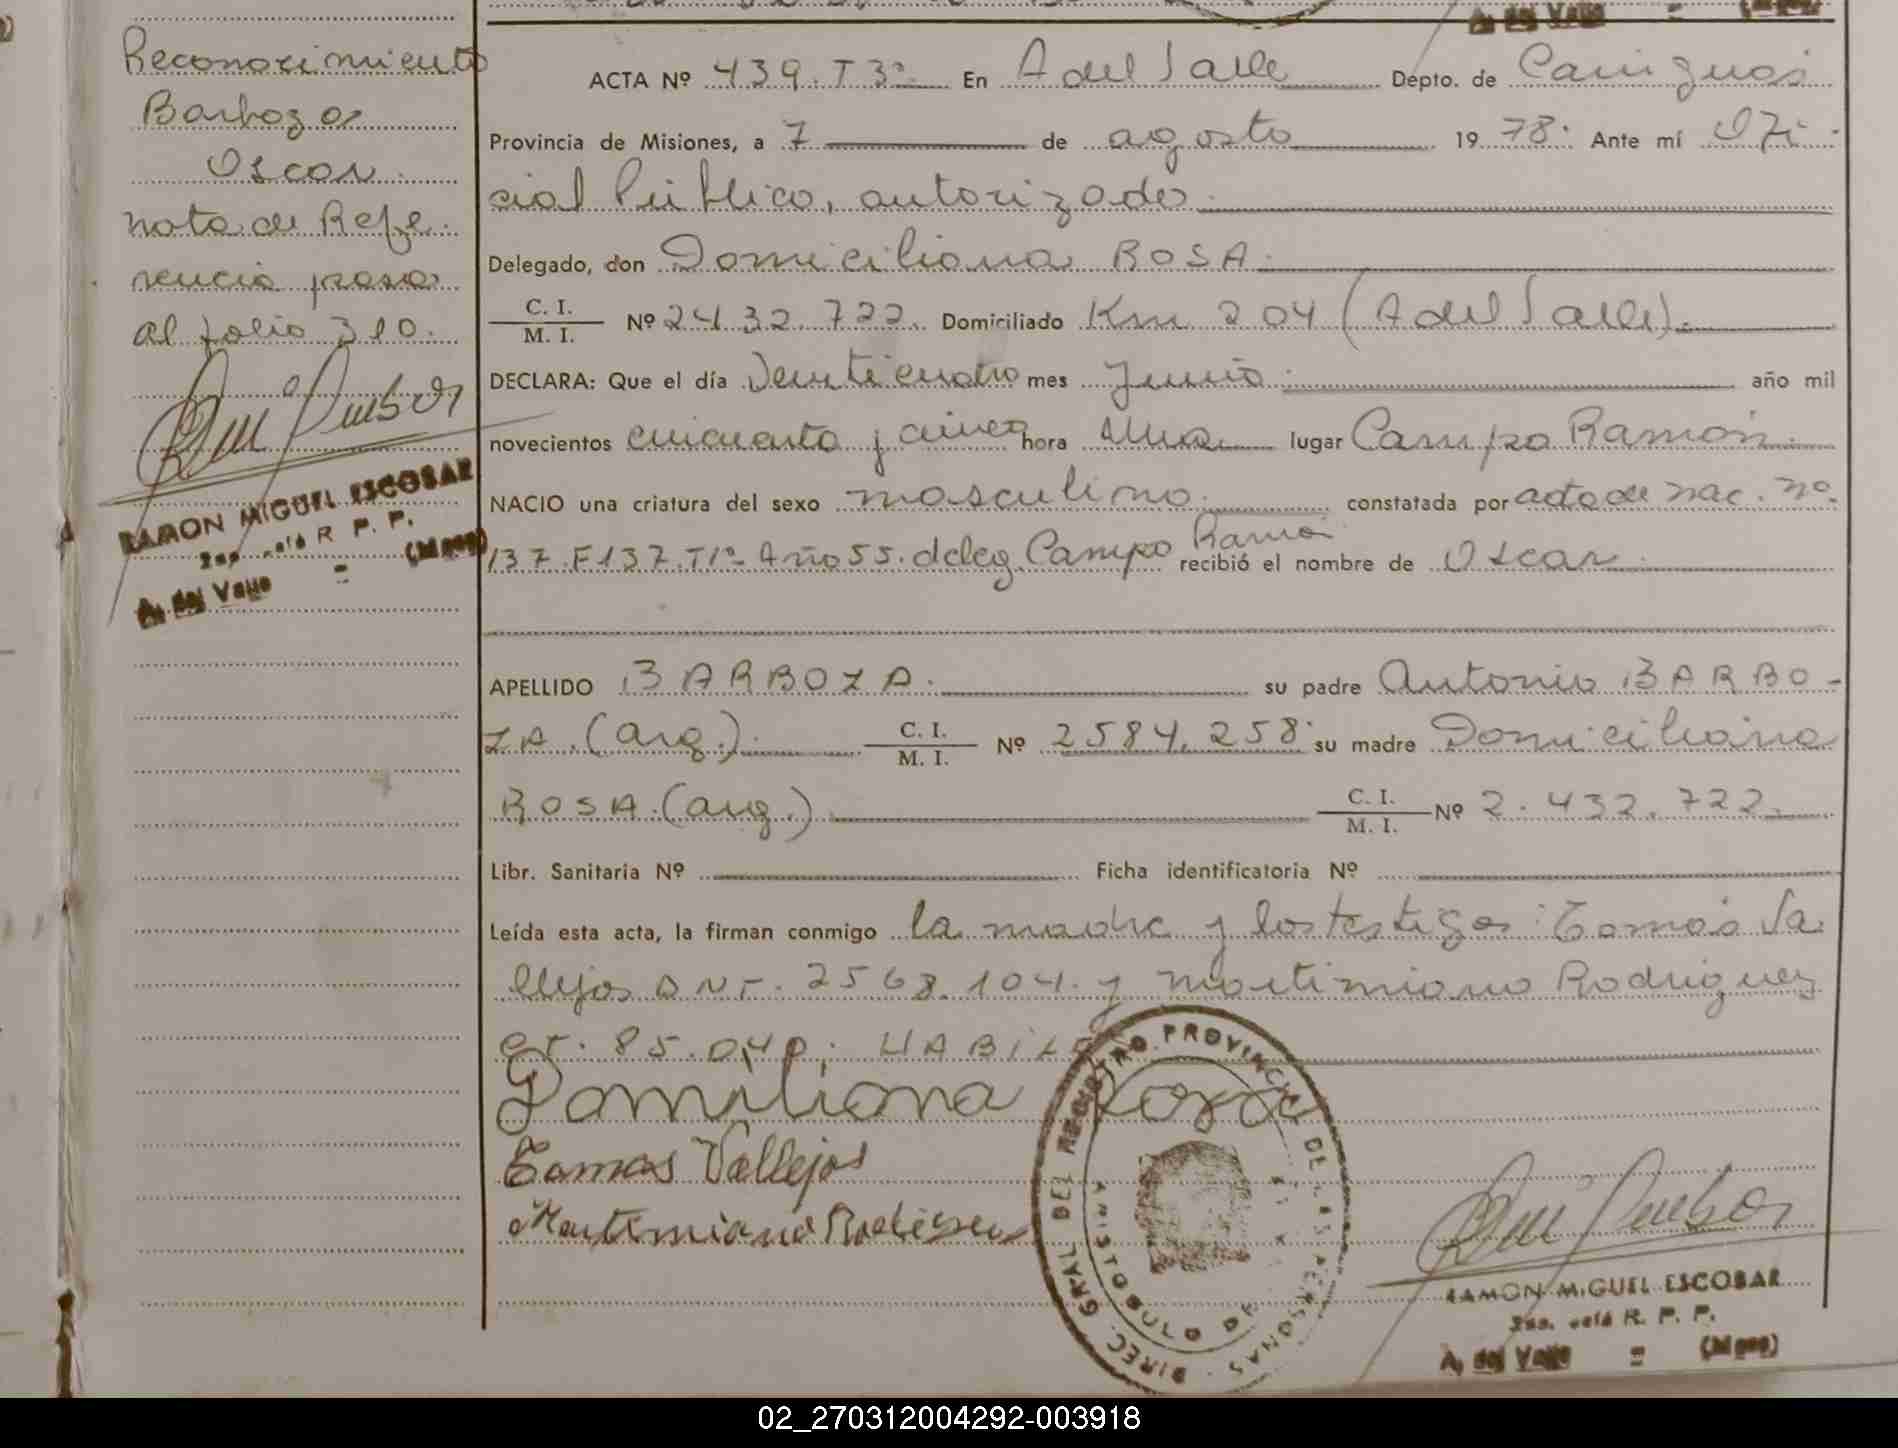 Reconocimiento
Barboza
Oscar.
nota de Refe-
rencia pasa
al folio 310.
RAMON MIGUEL ESCOBAR
R. P. P.
A. del Valle = (Mnes)
A. del Valle = (Mnes)
ACTA Nº 439.T3º En A del Valle Depto. de Cainguas
Provincia de Misiones, a 7 de agosto 19 78. Ante mí Ofi-
cial Público, autorizado.
Delegado, don Domiciliana ROSA.
C. I. / M. I. Nº 2432.722. Domiciliado Km 204 (A del Valle).
DECLARA: Que el día Veinticuatro mes Junio. año mil
novecientos cincuenta y cinco hora una lugar Campo Ramón.
NACIO una criatura del sexo masculino. constatada por acta de nac. nº
137.F137.T1º Año 55. deleg. Campo Ramón recibió el nombre de Oscar.
APELLIDO BARBOZA. su padre Antonio BARBO-
ZA. (arg.). C. I. / M. I. Nº 2584.258. su madre Domiciliana
ROSA. (arg.) C. I. / M. I. Nº 2.432.722.
Libr. Sanitaria Nº Ficha identificatoria Nº
Leída esta acta, la firman conmigo la madre y los testigos: Tomás Va
llejos DNI. 2568.104. y Martimiano Rodriguez
CI. 85.040. HABILES
Domiliana Rosa
Tomas Vallejos
Martimiano Rodriguez
DIREC. GRAL DEL REGISTRO PROVINCIAL DE LAS PERSONAS
ARISTOBULO DEL VALLE
RAMON MIGUEL ESCOBAR
R. P. P.
A. del Valle = (Mnes)
02_270312004292-003918